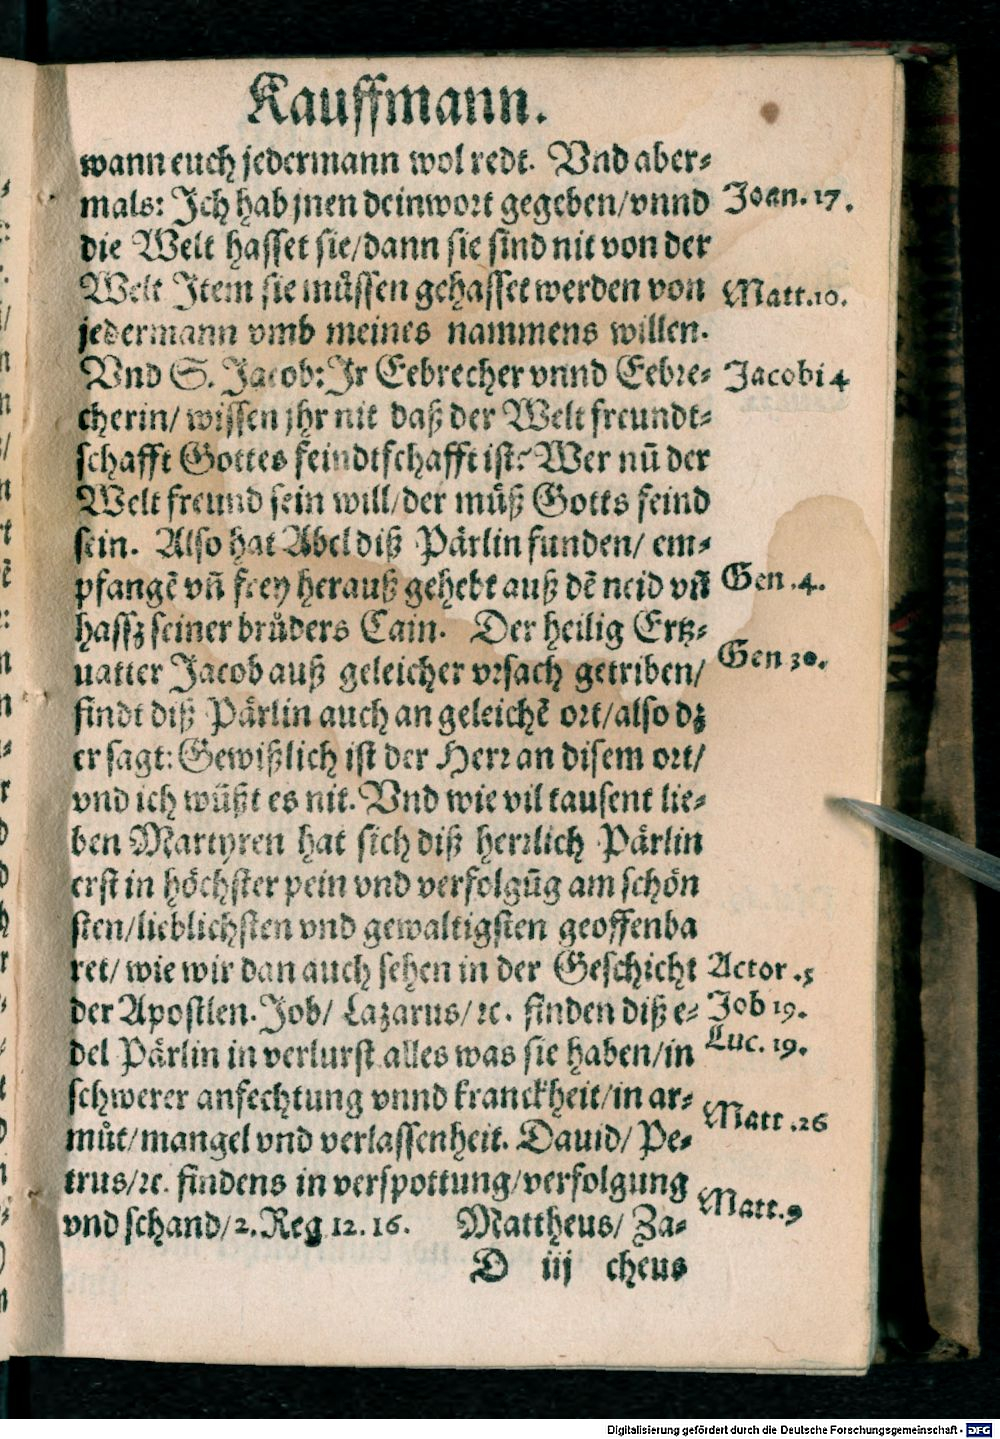 Kauffmann.
wann euch jedermann wol redt. Vnd aber⸗
mals: Ich hab jnen dein wort gegeben/vnnd
Joan. 17.
die Welt hasset sie/dann sie sind nit von der
Welt Item sie müssen gehasset werden von
Matt.10.
jedermann vmb meines nammens willen.
Vnd S. Jacob: Ir Eebrecher vnnd Eebre⸗
Jacobi 4
cherin/ wissen jhr nit daß der Welt freundt⸗
schafft Gottes feindtschafft ist? Wer nū der
Welt freund sein will/der můß Gotts feind
sein. Also hat Abel diß Pärlin funden/ em⸗
pfangē vn̄ frey herauß gehebt auß dē neid vn̄
Gen .4.
hassz seiner brůders Cain. Der heilig Ertz⸗
uatter Jacob auß geleicher vrsach getriben/
Gen 30.
findt diß Pärlin auch an geleichē ort/also dz
er sagt: Gewißlich ist der Herr an disem ort/
vnd ich wüßt es nit. Vnd wie vil tausent lie⸗
ben Martyren hat sich diß herrlich Pärlin
erst in höchster pein vnd verfolgūg am schön
sten/lieblichsten vnd gewaltigsten geoffenba
ret/ wie wir dan auch sehen in der Geschicht
Actor .5
der Apostlen. Job/ Lazarus/ ꝛc. finden diß e⸗
Job 19.
del Pärlin in verlurst alles was sie haben/in
Luc. 19.
schwerer anfechtung vnnd kranckheit/in ar⸗
můt/mangel vnd verlassenheit. Dauid/ Pe⸗
Matt .26
trus/ꝛc. findens in verspottung/verfolgung
vnd schand/2. Reg 12. 16. Mattheus/ Za⸗
Matt.9
D iij cheus
Digitalisierung gefördert durch die Deutsche Forschungsgemeinschaft - DFG